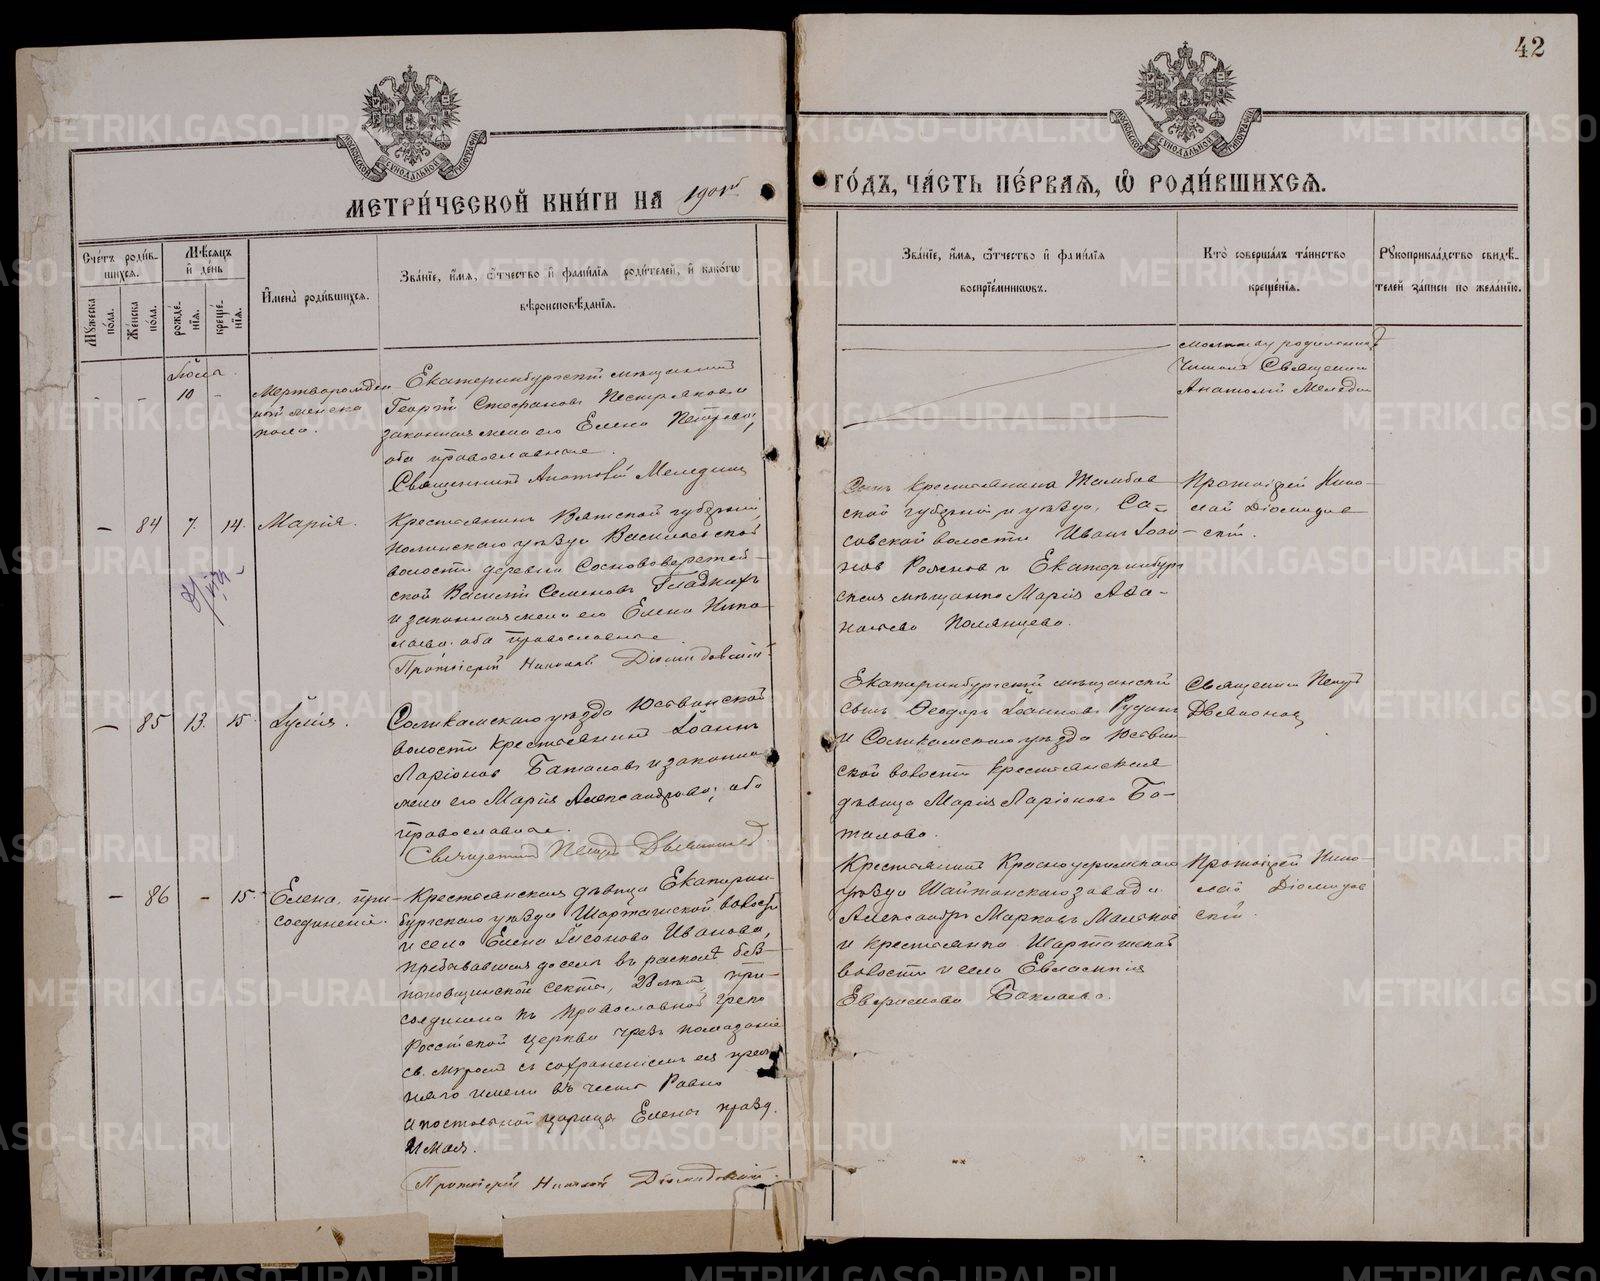 42
МОСКОВСКОЙ СУНОДАЛЬНОЙ ТИПОГРАФІИ
МОСКОВСКОЙ СУНОДАЛЬНОЙ ТИПОГРАФІИ
МЕТРИ́ЧЕСКОЙ КНИ́ГИ НА 1901й
ГО́ДЪ, ЧА́СТЬ ПЕ́РВАЯ, Ѡ РОДИ́ВШИХСЯ.
Сче́тъ роди́в-
шихся.
Му́жеска по́ла.
Же́нска по́ла.
Мѣ́сяцъ
и҆ де́нь
рожде́-
нїя.
креще́-
нїя.
И҆мена̀ роди́вшихся.
Зва́нїе, и҆́мя, ѻ҆́тчество и҆ фами́лїя роди́телей, и҆ како́гѡ
вѣроисповѣ́данїя.
Зва́нїе, и҆́мя, ѻ҆́тчество и҆ фами́лїя
воспрїе́мникѡвъ.
Кто̀ соверша́лъ та́инство
креще́нїя.
Рꙋкоприкла́дство свидѣ́-
телей за́писи по жела́нїю.
Іюля
- - 10 -
Мертворожден
ный женска
пола.
Екатеринбургскій мѣщанинъ
Георгій Стефановъ
законная жена его Елена Петрова,
оба православные.
Священникъ Анатолій Меледин
молитву родильницѣ
читалъ Священникъ
Анатолій Меледин
- 84 7. 14. Марія.
Крестьянинъ Вятской губерніи,
Нолинскаго уѣзда Васильевской
волости деревни
ской Василій Семеновъ Гладкихъ
и законная жена его Елена Нико-
лаева оба православные.
Протоіерей Николай Діомидовскій.
Сынъ крестьянина Тамбов
ской губерніи и уѣзда, Са=
совской волости Иванъ Іоан-
новъ и Екатеринбург
ская мѣщанка Марія Афа-
насьева
Протоіерей Нико-
лай Діомидов
скій.
- 85 13. 15. Іулія.
Соликамскаго уѣзда Юсвинской
волости крестьянинъ Іоаннъ
Ларіоновъ Баталовъ и законная
жена его Марія Александрова, оба
православные.
Священникъ Петръ
Екатеринбургскій мѣщанскій
сынъ Ѳеодоръ Іоанновъ Рудинъ
и Соликамскаго уѣзда Юсвин-
ской волости крестьянская
дѣвица Марія Ларіонова Ба-
талова.
Священникъ Петръ
- 86 - 15. Елена, при-
соединеніе.
Крестьянская дѣвица Екатерин-
бургскаго уѣзда Шарташской волости
и села Елена Иванова,
пребывавшая доселѣ въ расколѣ без-
поповщинской секты, при-
соединена къ православной греко
Россійской церкви чрезъ помазаніе
св. мѵромъ съ сохраненіемъ ея преж-
няго имени въ честь Равно
апостольной царицы Елены празд.
21 мая.
Протоіерей Николай Діомидовскій.
Крестьянинъ Красноуфимскаго
уѣзда Шайтанскаго завода
Александръ Марковъ
и крестьянка Шарташской
волости и села Евлампія
Протоіерей Нико-
лай Діомидов
скій.
METRIKI.GASO-URAL.RU